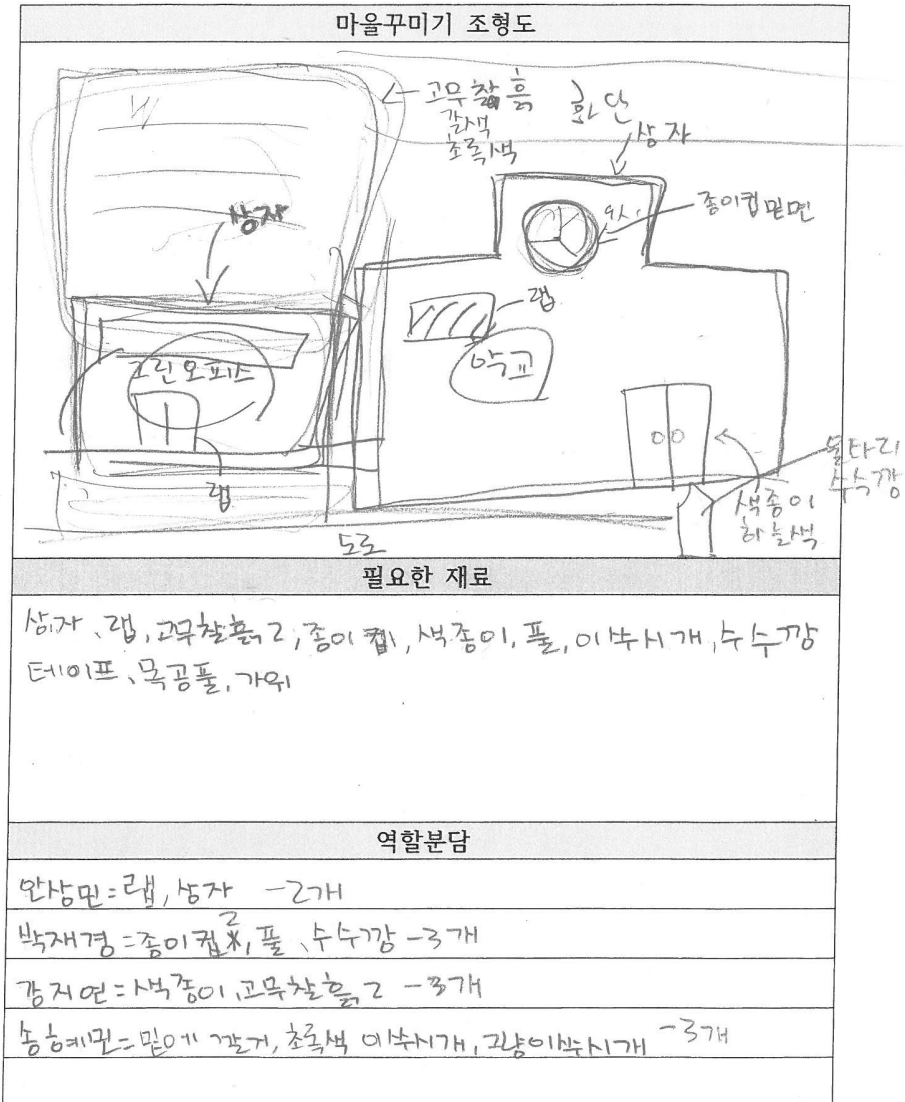 마을꾸미기 조형도
고무찰흙
갈색
초록색
화단
상자
종이컵 밑면
9시
상자
랩
그린오피스
학교
랩
울타리
수수깡
색종이
하늘색
도로
필요한 재료
상자, 랩, 고무찰흙2, 종이컵, 색종이, 풀, 이쑤시개, 수수깡
테이프, 목공풀, 가위
역할분담
안상민=랩, 상자 -2개
박재경=종이컵2, 풀, 수수깡 -3개
강지연=색종이, 고무찰흙2 -3개
송혜민=밑에 깔거, 초록색 이쑤시개, 그냥이쑤시개 -3개